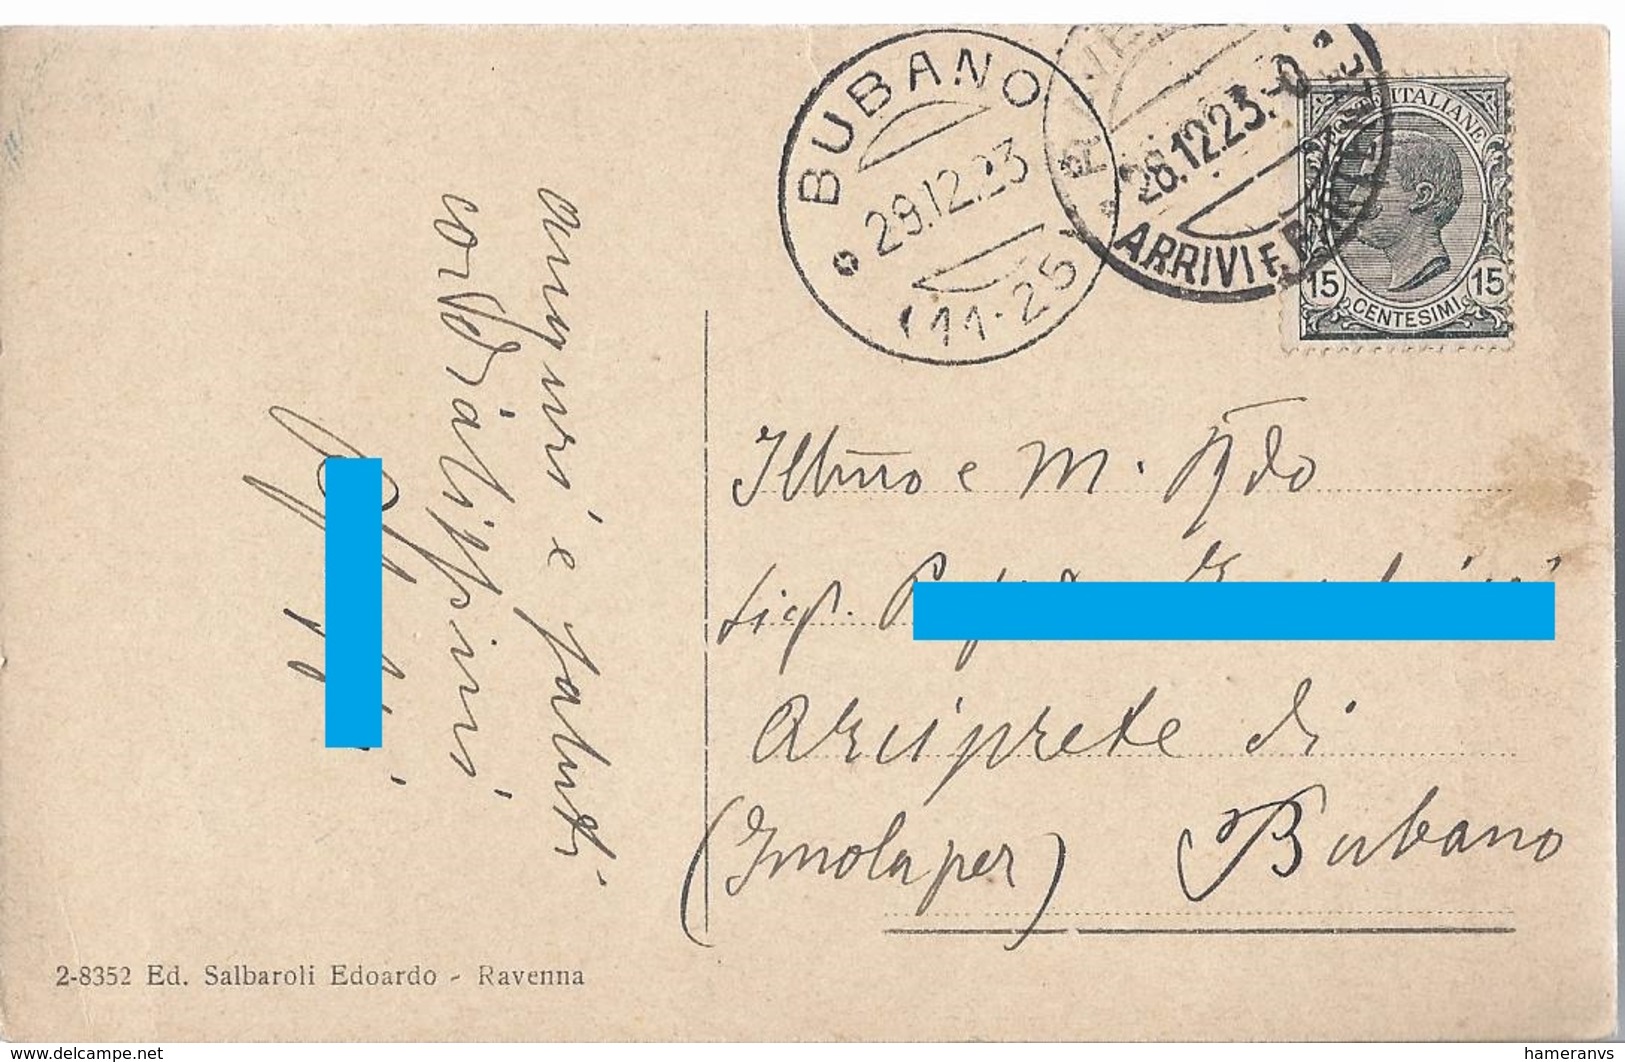 BUBANO
29.12.23
(11-25)
RAVENNA
28.12.23.-0
ARRIVI E PARTENZE
POSTE ITALIANE
15 15
CENTESIMI
auguri e saluti
cordialissimi
Illmo e M. Rdo
Sig.
Arciprete di
(Imola per) Bubano
2-8352 Ed. Salbaroli Edoardo - Ravenna
www.delcampe.net
hameranvs